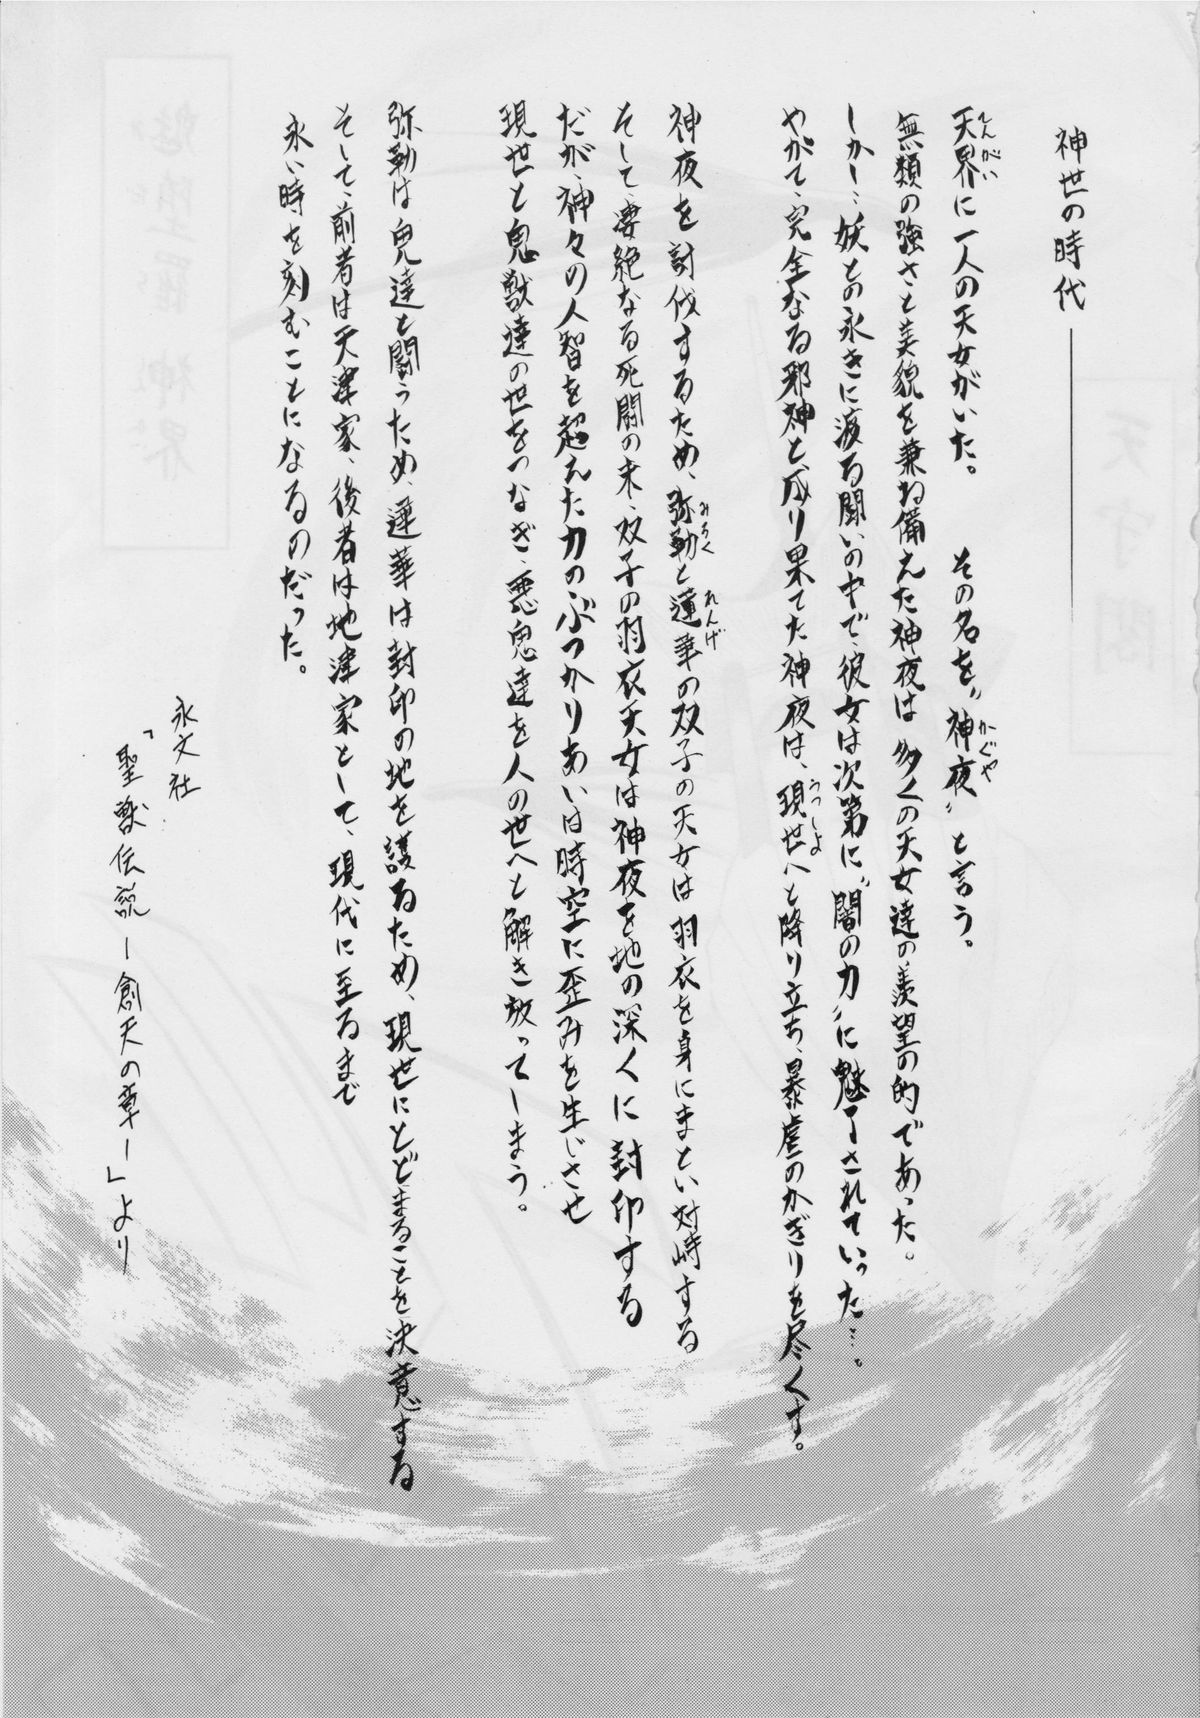 神世の時代――――
天界に一人の天女がいた。　その名を〝神夜〟と言う。
無類の強さと美貌を兼ね備えた神夜は多くの天女達の羨望の的であった。
しかし…妖との永きに渡る闘いの中で、彼女は次第に〝闇の力〟に魅了されていった…。
やがて、完全なる邪神と成り果てた神夜は、現世へと降り立ち、暴虐のかぎりを尽くす。
神夜を討伐するため、弥勒と蓮華の双子の天女は羽衣を身にまとい対峙する
そして凄絶なる死闘の末、双子の羽衣天女は神夜を地の深くに封印する
だが、神々の人智を超えた力のぶつかりあいは時空に歪みを生じさせ
現世と鬼獣達の世をつなぎ、悪鬼達を人の世へと解き放ってしまう。
弥勒は鬼達と闘うため、蓮華は封印の地を護るため、現世にとどまることを決意する
そして、前者は天津家、後者は地津家として、現代に至るまで
永い時を刻むことになるのだった。
永文社
「聖獣伝説―創天の章―」より